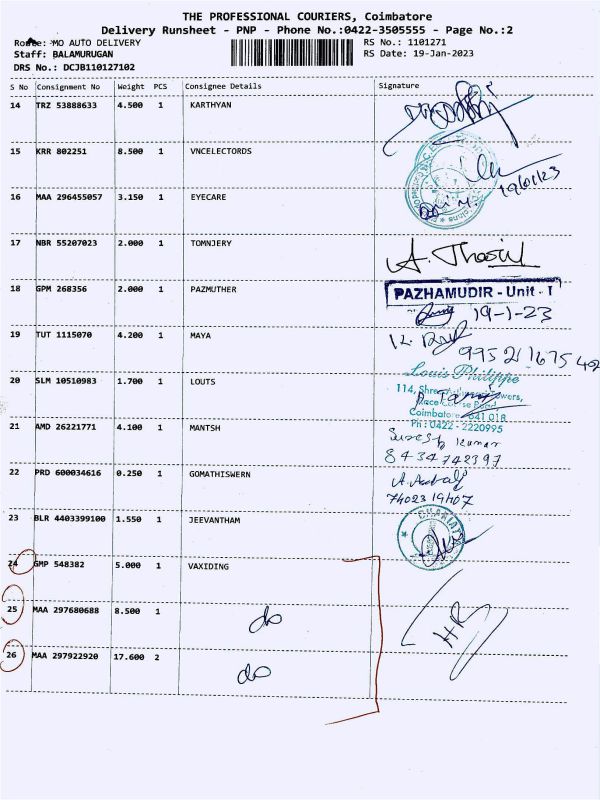 THE PROFESSIONAL COURIERS, Coimbatore
Delivery Runsheet - PNP - Phone No.:0422-3505555 - Page No.:2
MO AUTO DELIVERY RS No.: 1101271
Staff: BALAMURUGAN RS Date: 19-Jan-2023
DRS No.: DCJB110127102
S No Consignment No Weight PCS Consignee Details Signature
14 TRZ 53888633 4.500 1 KARTHYAN
15 KRR 802251 8.500 1 VNCELECTORDS
19/01/23
16 MAA 296455057 3.150 1 EYECARE
17 NBR 55207023 2.000 1 TOMNJERY
A. Thasil
18 GPM 268356 2.000 1 PAZMUTHER
PAZHAMUDIR - Unit - I
19-1-23
19 TUT 1115070 4.200 1 MAYA
99521 67540
20 SLM 10510983 1.700 1 LOUTS
Louis Philippe
114,
Race Course Road
Coimbatore - 641 018
Ph : 0422 - 2220995
21 AMD 26221771 4.100 1 MANTSH
Suresh Kumar
8434742397
22 PRD 600034616 0.250 1 GOMATHISWERN
7402319407
23 BLR 4403399100 1.550 1 JEEVANTHAM
24 GMP 548382 5.000 1 VAXIDING
25 MAA 297680688 8.500 1 do
HR
26 MAA 297922920 17.600 2 do